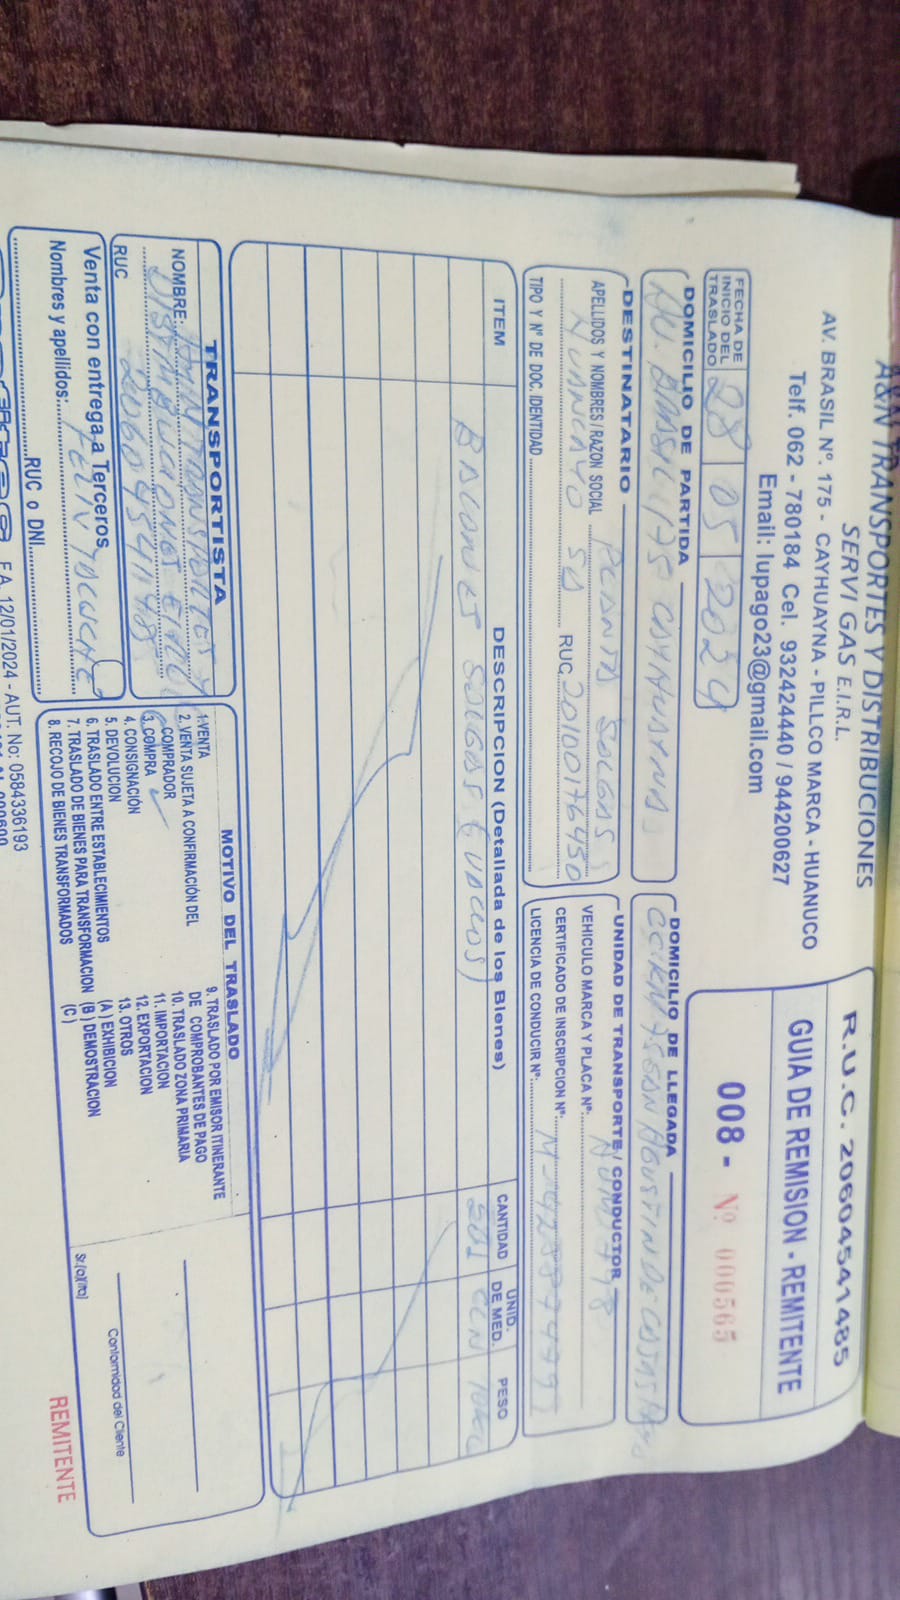 A&N TRANSPORTES Y DISTRIBUCIONES
SERVI GAS E.I.R.L.
AV. BRASIL Nº. 175 - CAYHUAYNA - PILLCO MARCA - HUANUCO
Telf. 062 - 780184 Cel. 932424440 / 944200627
Email: lupago23@gmail.com
R.U.C. 20604541485
GUIA DE REMISION - REMITENTE
008 - Nº 000565
FECHA DE INICIO DEL TRASLADO 28 05 2024
DOMICILIO DE PARTIDA
AV. BRASIL 175 CAYHUAYNA
DOMICILIO DE LLEGADA
SAN AGUSTIN DE CAJAS
DESTINATARIO
APELLIDOS Y NOMBRES / RAZON SOCIAL PLANTA SOLGAS
HUANCAYO SA RUC 20100176450
TIPO Y Nº DE DOC. IDENTIDAD
UNIDAD DE TRANSPORTE / CONDUCTOR
VEHICULO MARCA Y PLACA Nº:
CERTIFICADO DE INSCRIPCION Nº:
LICENCIA DE CONDUCIR Nº:
ITEM DESCRIPCION (Detallada de los Bienes) CANTIDAD UNID. DE MED. PESO
BALONES SOLGAS (VACIOS) 501
TRANSPORTISTA
NOMBRE: A&N TRANSPORTES Y
DISTRIBUCIONES EIRL
RUC 20604541485
Venta con entrega a Terceros
Nombres y apellidos: FELIX
RUC o DNI
MOTIVO DEL TRASLADO
1. VENTA
2. VENTA SUJETA A CONFIRMACIÓN DEL
COMPRADOR
3. COMPRA ✓
4. CONSIGNACIÓN
5. DEVOLUCION
6. TRASLADO ENTRE ESTABLECIMIENTOS
7. TRASLADO DE BIENES PARA TRANSFORMACION
8. RECOJO DE BIENES TRANSFORMADOS
9. TRASLADO POR EMISOR ITINERANTE
DE COMPROBANTES DE PAGO
10. TRASLADO ZONA PRIMARIA
11. IMPORTACION
12. EXPORTACION
13. OTROS
(A) EXHIBICION
(B) DEMOSTRACION
(C)
Conformidad del Cliente
Sr.(a)(ita)
REMITENTE
F.A. 12/01/2024 - AUT. No: 0584336193